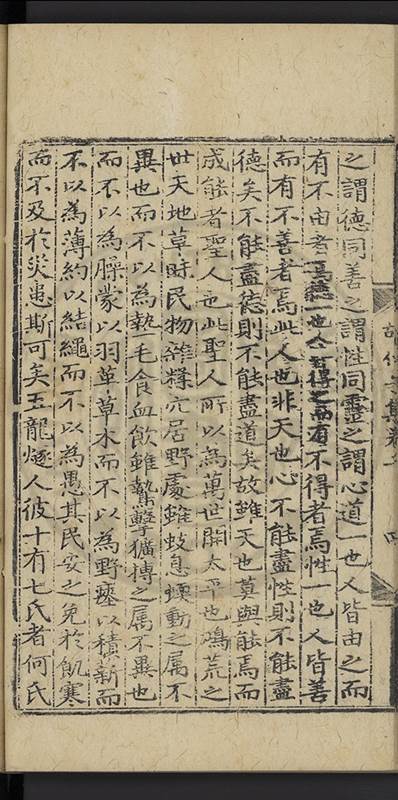 之謂德同善之謂性同靈之謂心道一也人皆由之而
有不由者焉德一也人皆得之而有不得者焉性一也人皆善
而有不善者焉此人也非天也心不能盡性則不能盡
德矣不能盡德則不能盡道矣故雖天也莫與能焉而
成能者聖人也此聖人所以為萬世開太平也鴻荒之
世天地草昧民物雜糅穴居野處雖蚑息蝡動之属不
異也而不以為執毛食血飲雖鷙擊獷搏之属不異也
而不以為腥蒙以羽革草木而不以為野瘞以積薪而
不以為薄約以結繩而不以為愚其民安之免於飢寒
而不及於災患斯可矣五龍燧人彼十有七氏者何氏